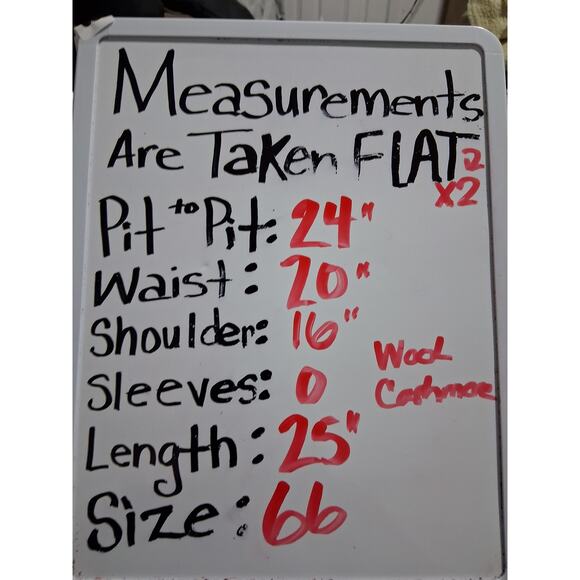 Measurements
Are Taken FLAT 2
x2
Pit to Pit: 24"
Waist: 20"
Shoulder: 16"
Wool
Sleeves: 0
Cashmoe
Length: 25"
Size: 66